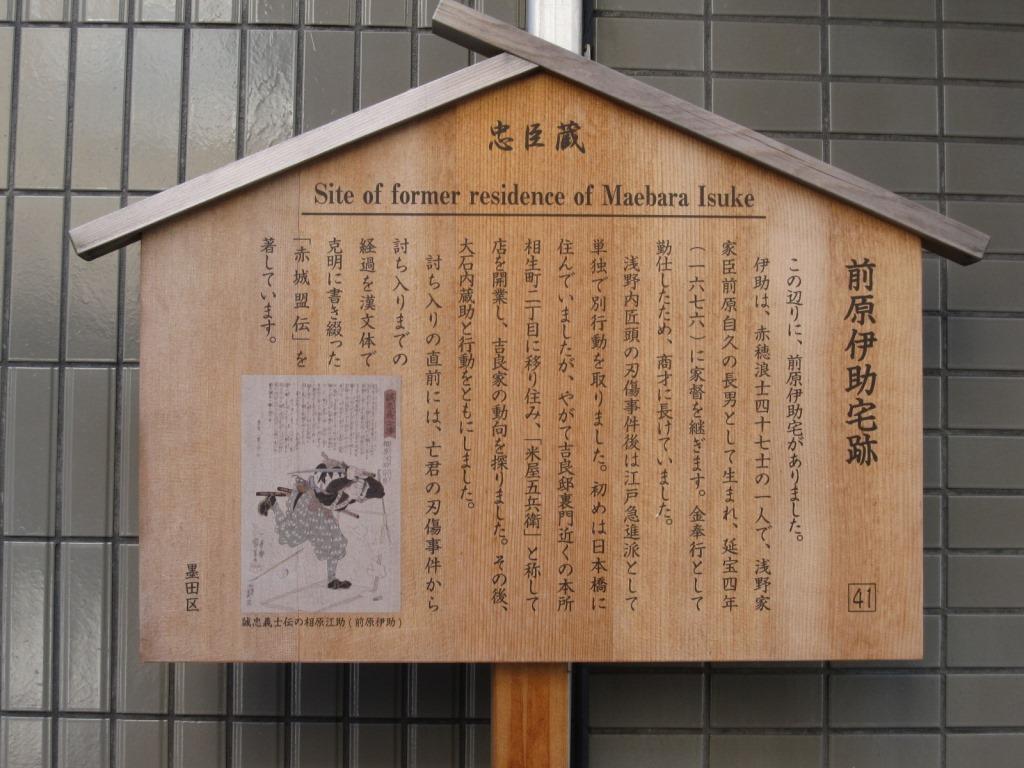 忠臣蔵
Site of former residence of Maebara Isuke
前原伊助宅跡
41
この辺りに、前原伊助宅がありました。
伊助は、赤穂浪士四十七士の一人で、浅野家
家臣前原自久の長男として生まれ、延宝四年
（一六七六）に家督を継ぎます。金奉行として
勤仕したため、商才に長けていました。
浅野内匠頭の刃傷事件後は江戸急進派として
単独で別行動を取りました。初めは日本橋に
住んでいましたが、やがて吉良邸裏門近くの本所
相生町二丁目に移り住み、「米屋五兵衛」と称して
店を開業し、吉良家の動向を探りました。その後、
大石内蔵助と行動をともにしました。
討ち入りの直前には、亡君の刃傷事件から
討ち入りまでの
経過を漢文体で
克明に書き綴った
「赤城盟伝」を
著しています。
誠忠義士伝の相原江助（前原伊助）
墨田区